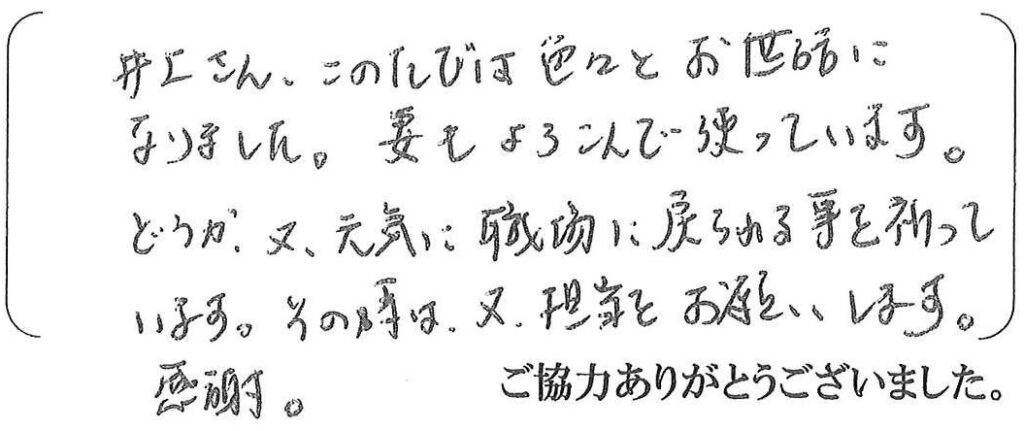 井上さん、このたびは色々とお世話に
なりました。妻もよろこんで使っています。
どうか、又、元気に職場に戻られる事を祈って
います。その時は、又、担当をお願いします。
感謝。
ご協力ありがとうございました。